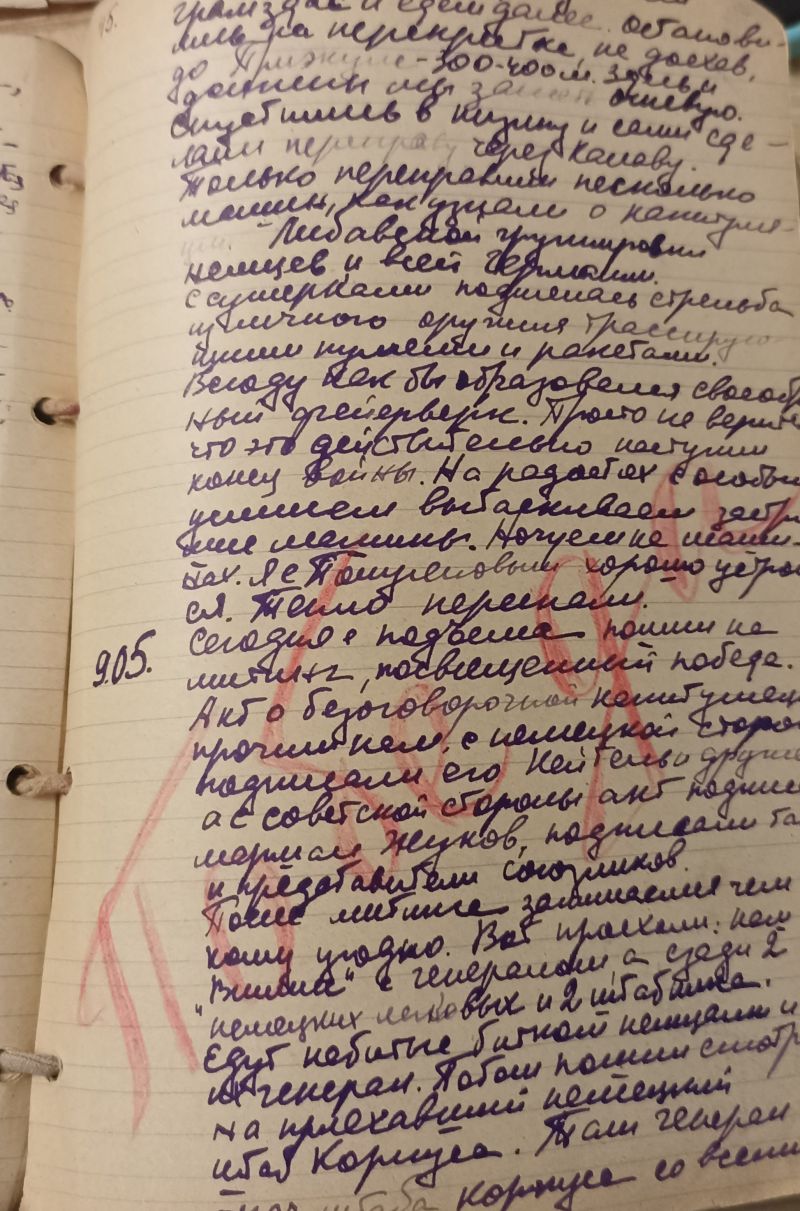 5.
и едем далее. останови-
лись на перекрёстке, не доехав,
до 300-400 м. здесь и
должны мы занять огневую.
Спустились в низину и сами сде-
лали переправу через канаву.
Только переправили несколько
машин, как узнали о капитуля-
ции Либавской группировки
немцев и всей Германии.
С сумерками поднялась стрельба
из личного оружия трассирую-
щими пулями и ракетами.
Всюду как бы образовался своеобр
ный фейерверк. Просто не верит
что это действительно наступил
конец войны. На радостях с особым
усилием вытаскиваем застр
шие машины. Ночуем на маши-
нах. Я с хорошо устрои
ся. Тепло переспали.
9.05. Сегодня с подъема пошли на
митинг, посвященный победе.
Акт о безоговорочной капитуляц
прочитали нам, с немецкой сторон
подписали его Кейтель и другие
а с советской стороны акт подпис
маршал Жуков, подписали та
и представители союзников.
После митинга занимаемся чем
кому угодно. Вот проехали: нам
"Виллис" с генералом, а сзади 2
немецких легковых и 2 штабника.
Едут набитые битком немцами и
их генерал. Потом пошли смотр
на приехавший немецкий
штаб Корпуса. Там генерал
штаба корпуса со всеми
Победа